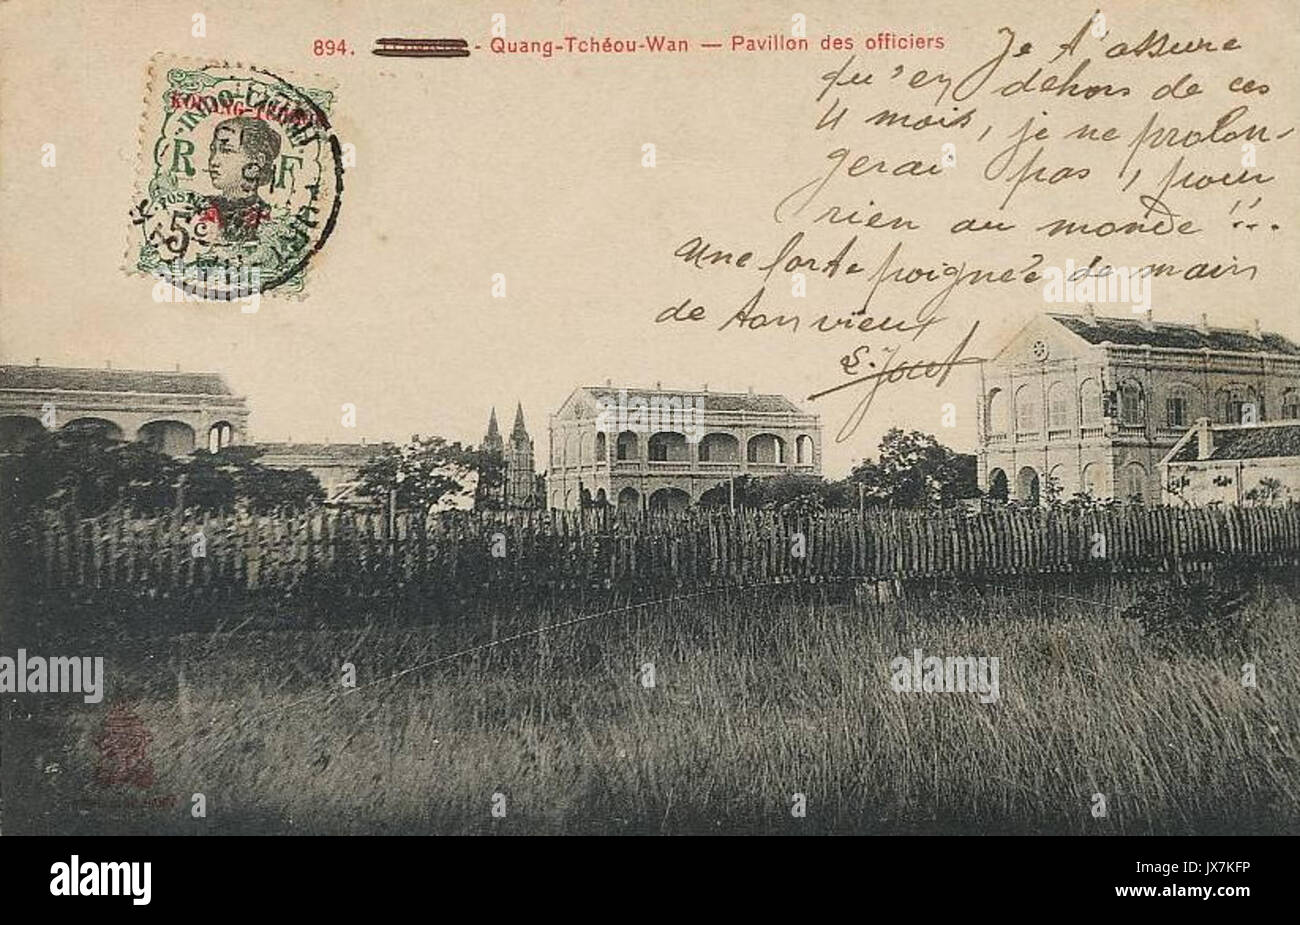 894. - Quang-Tchéou-Wan — Pavillon des officiers
Je t'assure
qu'en dehors de ces
4 mois, je ne prolon-
gerai pas, pour
rien au monde !!...
Une forte poignée de main
de ton vieux
INDO-CHINE
KOUANG-TCHÉOU
R F
POSTES
5c
a
alamy
alamy stock photo
JX7KFP
www.alamy.com